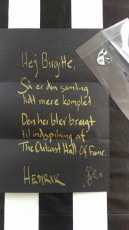 Hej Birgitte,
Så er den samling
lidt mere komplet
Den her blev brugt
til indspilning af
The Outcast Hall Of Fame.
HENRIK